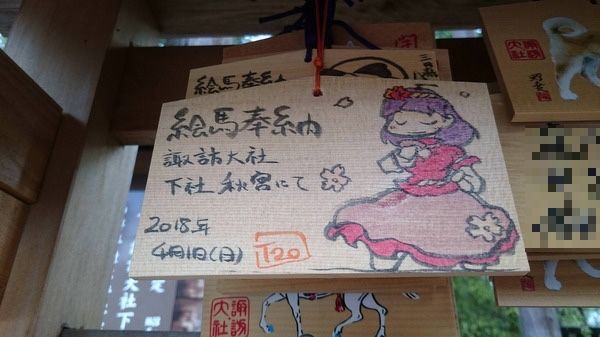 絵馬奉納
諏訪大社
下社 秋宮にて
2018年
4月1日(日)
T20
絵馬奉納
諏訪
大社
諏訪
大社
大社下